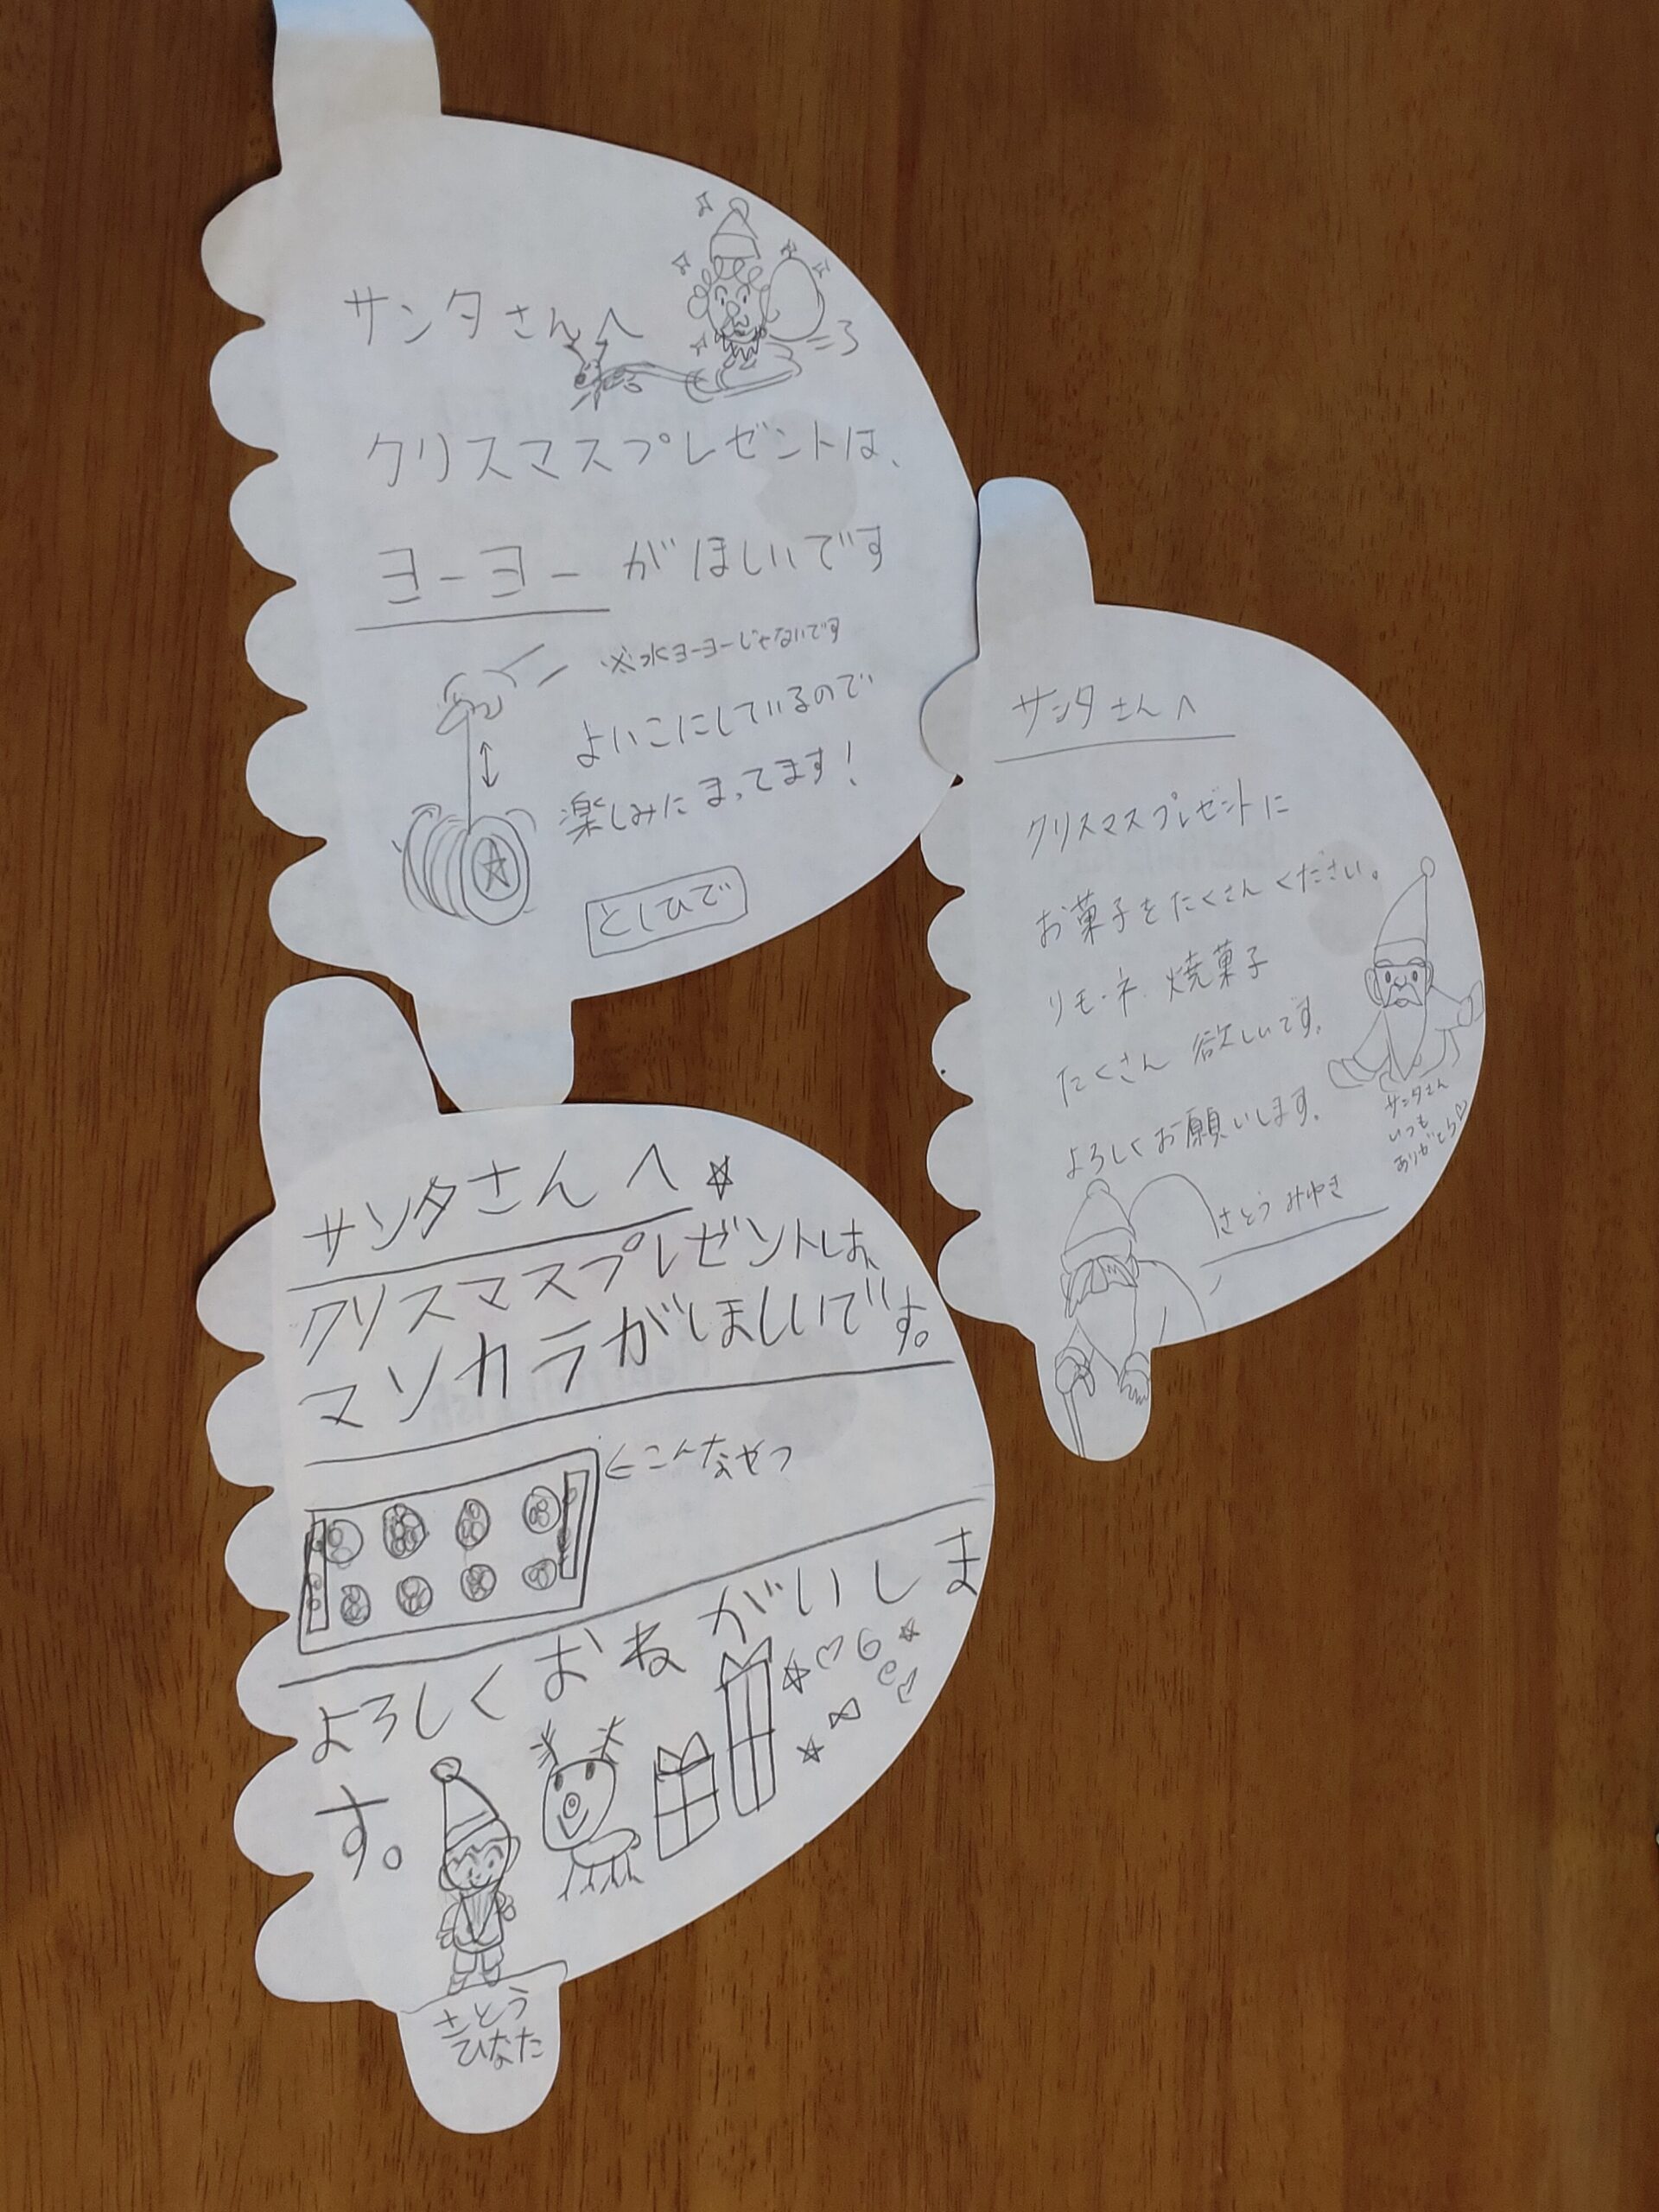 サンタさんへ
クリスマスプレゼントは、
ヨーヨーがほしいです
※水ヨーヨーじゃないです
よいこにしているので
楽しみにまってます！
としひで
サンタさんへ
クリスマスプレゼントに
お菓子をたくさんください。
リモーネ、焼菓子
たくさん欲しいです。
よろしくお願いします。
サンタさん
いつも
ありがとう♡
さとうみゆき
サンタさんへ☆
クリスマスプレゼントは、
マンカラがほしいです。
←こんなやつ
よろしくおねがいしま
す。
さとう
ひなた